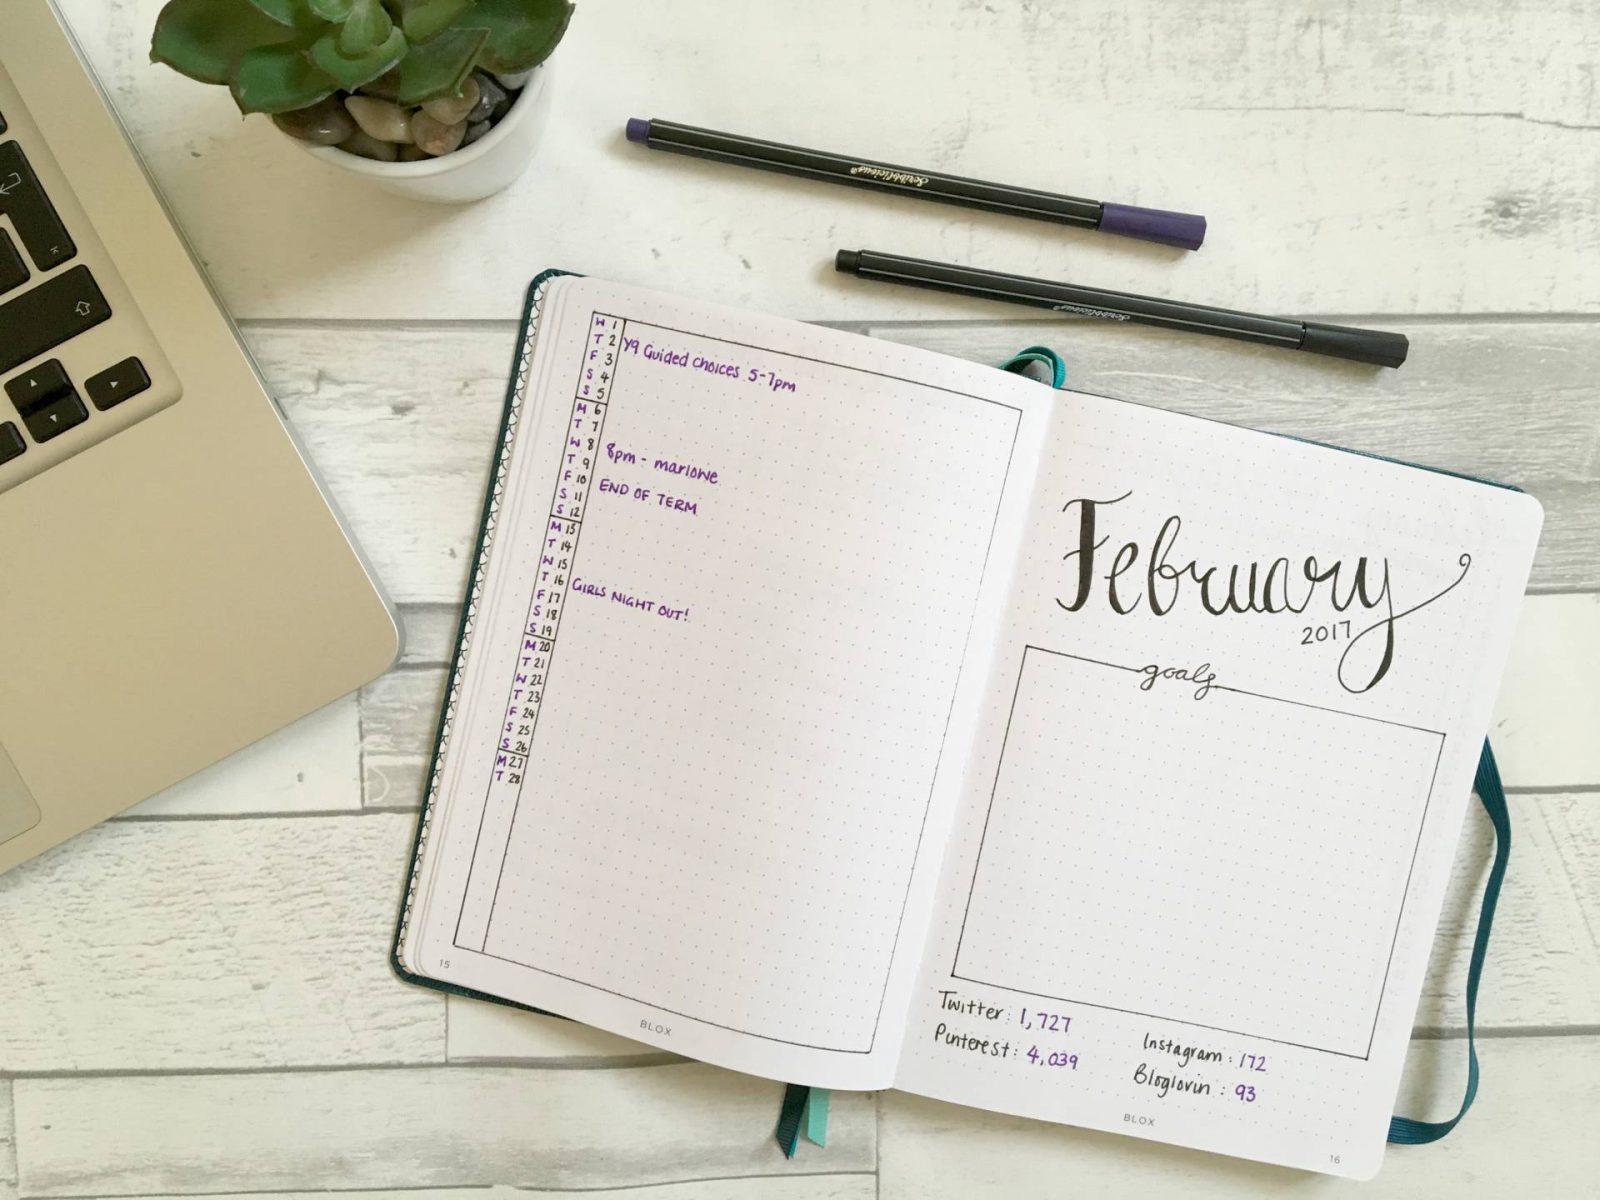 Scribblicious®
Scribblicious®
W 1
T 2 Y9 Guided choices 5-7pm
F 3
S 4
S 5
M 6
T 7
W 8 8pm - marlowe
T 9
F 10 END OF TERM
S 11
S 12
M 13
T 14
W 15
T 16 GIRLS NIGHT OUT!
F 17
S 18
S 19
M 20
T 21
W 22
T 23
F 24
S 25
S 26
M 27
T 28
15
BLOX
February
2017
goals
Twitter: 1,727
Pinterest: 4,039
Instagram: 172
Bloglovin: 93
BLOX
16